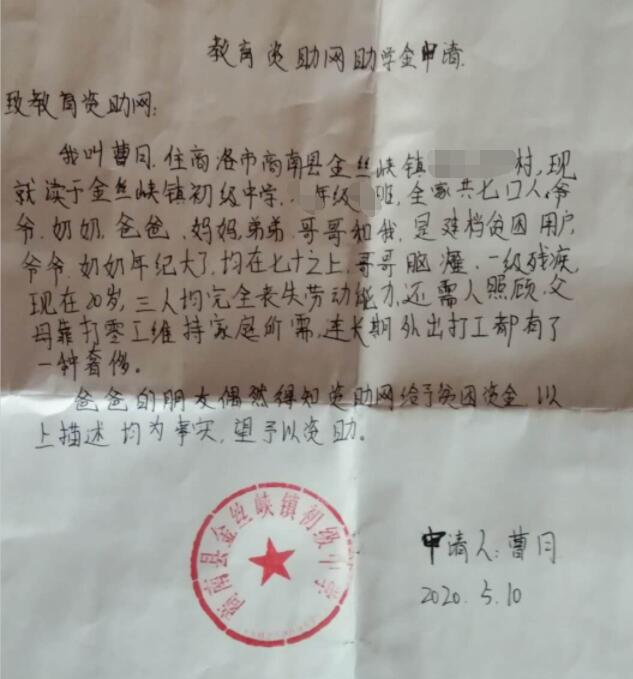 教育资助网助学金申请
致教育资助网:
我叫曹月.住商洛市商南县金丝峡镇 村,现
就读于金丝峡镇初级中学, 年级 班,全家共七口人,爷
爷.奶奶.爸爸.妈妈,弟弟.哥哥和我,是建档贫困用户,
爷爷.奶奶年纪大了,均在七十之上,哥哥脑瘫.一级残疾,
现在20岁,三人均完全丧失劳动能力,还需人照顾.父
母靠打零工维持家庭所需,连长期外出打工都有了
一种奢侈。
爸爸的朋友偶然得知资助网给予贫困资金.以
上描述均为事实,望予以资助。
商南县金丝峡镇初级中学
申请人:曹月
2020.5.10